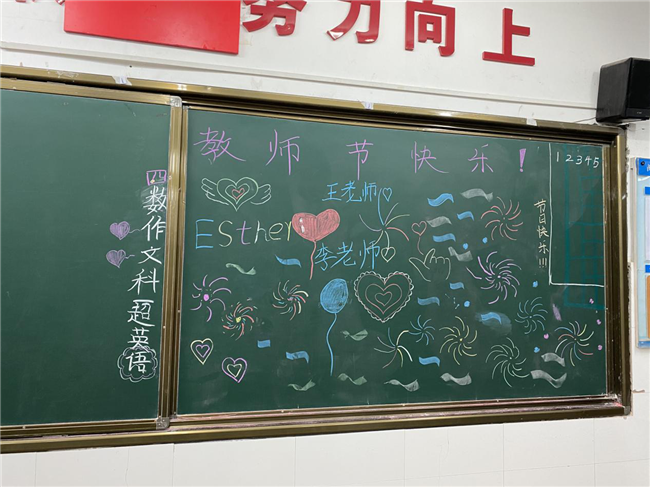 努力向上
教师节快乐！
王老师
Esther
李老师
四数作文科超英语
节日快乐!!!
12345